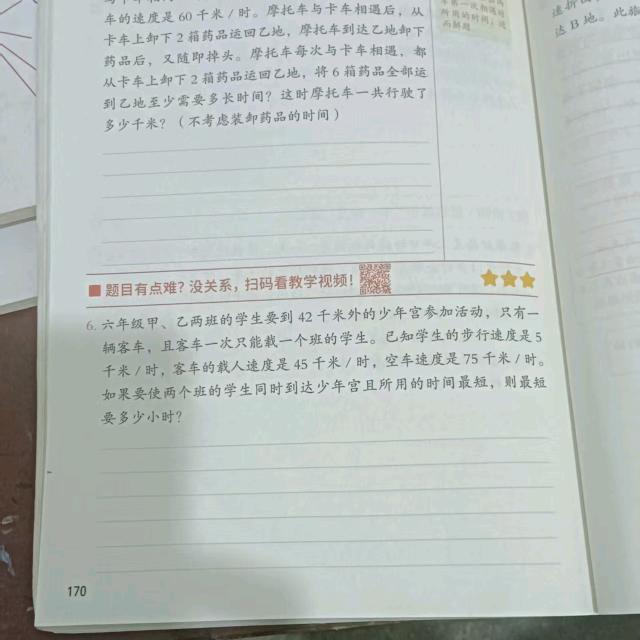 车的速度是60千米/时。摩托车与卡车相遇后,从
卡车上卸下2箱药品运回乙地,摩托车到达乙地卸下
药品后,又随即掉头。摩托车每次与卡车相遇,都
从卡车上卸下2箱药品运回乙地,将6箱药品全部运
到乙地至少需要多长时间?这时摩托车一共行驶了
多少千米?(不考虑装卸药品的时间)
达B地。此
题目有点难?没关系,扫码看教学视频!
6. 六年级甲、乙两班的学生要到42千米外的少年宫参加活动,只有一
辆客车,且客车一次只能载一个班的学生。已知学生的步行速度是5
千米/时,客车的载人速度是45千米/时,空车速度是75千米/时。
如果要使两个班的学生同时到达少年宫且所用的时间最短,则最短
要多少小时?
170